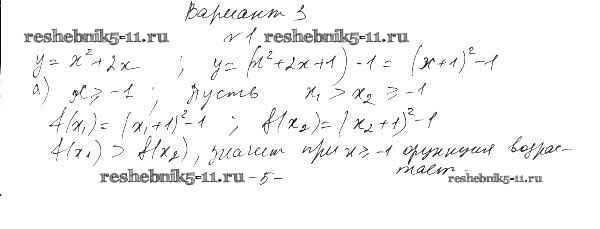 Вариант 3
reshebnik5-11.ru №1 reshebnik5-11.ru
y = x² + 2x ; y = (x² + 2x + 1) - 1 = (x+1)² - 1
а) x ≥ -1 ; Пусть x₁ > x₂ ≥ -1
f(x₁) = (x₁+1)² - 1 ; f(x₂) = (x₂+1)² - 1
f(x₁) > f(x₂), значит при x ≥ -1 функция возрас-
тает.
reshebnik5-11.ru -5- reshebnik5-11.ru